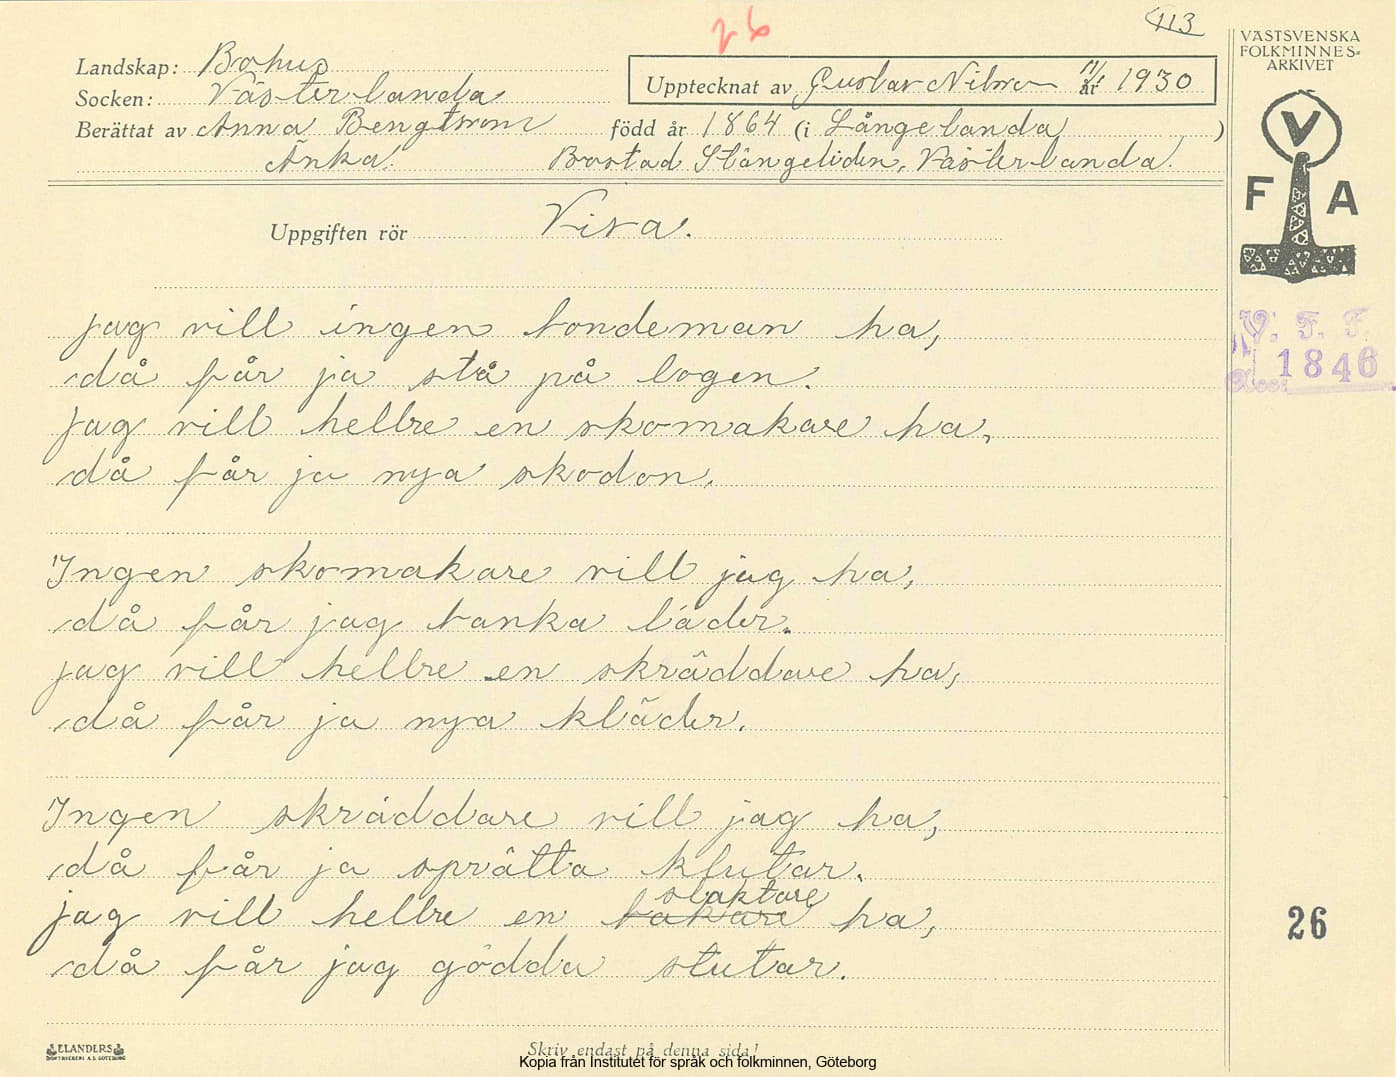 26
113
VÄSTSVENSKA
FOLKMINNES=
ARKIVET
Landskap: Bohus
Socken: Västerlanda
Upptecknat av Gustav Nilsson 11/1 år 1930
Berättat av Anna Bengtsson född år 1864 (i Långelanda )
Änka. Bostad Stångeliden, Västerlanda.
V
F A
Uppgiften rör Visa.
V. F. F.
1846
Jag vill ingen bondeman ha,
då får ja stå på logen.
Jag vill hellre en skomakare ha,
då får ja nya skodon.
Ingen skomakare vill jag ha,
då får jag banka läder.
jag vill hellre en skräddare ha,
då får ja nya kläder.
Ingen skräddare vill jag ha,
då får ja sprätta klutar.
jag vill hellre en bakare slaktare ha,
då får jag gödda stutar.
26
ELANDERS
BOKTRYCKERI A. B. GÖTEBORG
Skriv endast på denna sida!
Kopia från Institutet för språk och folkminnen, Göteborg